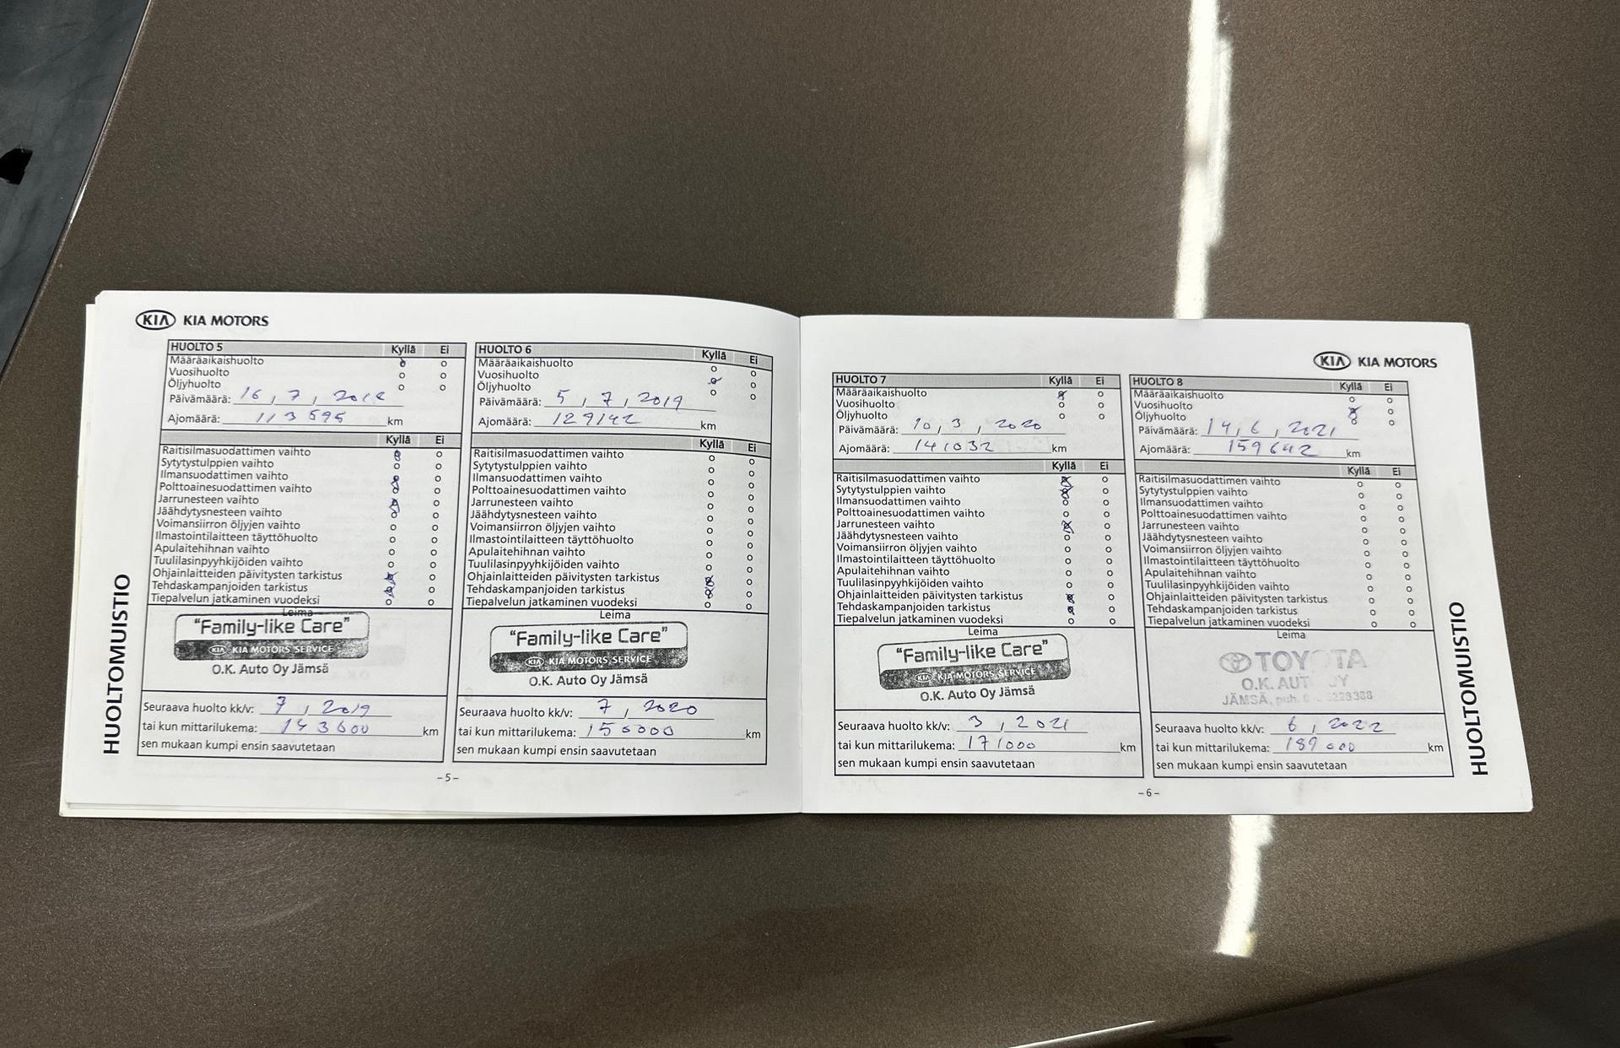 KIA KIA MOTORS
HUOLTO 5 Kyllä Ei
Määräaikaishuolto
Vuosihuolto
Öljyhuolto
Päivämäärä: 16, 7, 2018
Ajomäärä: 113595 km
Kyllä Ei
Raitisilmasuodattimen vaihto
Sytytystulppien vaihto
Ilmansuodattimen vaihto
Polttoainesuodattimen vaihto
Jarrunesteen vaihto
Jäähdytysnesteen vaihto
Voimansiirron öljyjen vaihto
Ilmastointilaitteen täyttöhuolto
Apulaitehihnan vaihto
Tuulilasinpyyhkijöiden vaihto
Ohjainlaitteiden päivitysten tarkistus
Tehdaskampanjoiden tarkistus
Tiepalvelun jatkaminen vuodeksi
Leima
"Family-like Care"
KIA KIA MOTORS SERVICE
O.K. Auto Oy Jämsä
Seuraava huolto kk/v: 7, 2019
tai kun mittarilukema: 143600 km
sen mukaan kumpi ensin saavutetaan
HUOLTO 6 Kyllä Ei
Määräaikaishuolto
Vuosihuolto
Öljyhuolto
Päivämäärä: 5, 7, 2019
Ajomäärä: 129142 km
Kyllä Ei
Raitisilmasuodattimen vaihto
Sytytystulppien vaihto
Ilmansuodattimen vaihto
Polttoainesuodattimen vaihto
Jarrunesteen vaihto
Jäähdytysnesteen vaihto
Voimansiirron öljyjen vaihto
Ilmastointilaitteen täyttöhuolto
Apulaitehihnan vaihto
Tuulilasinpyyhkijöiden vaihto
Ohjainlaitteiden päivitysten tarkistus
Tehdaskampanjoiden tarkistus
Tiepalvelun jatkaminen vuodeksi
Leima
"Family-like Care"
KIA KIA MOTORS SERVICE
O.K. Auto Oy Jämsä
Seuraava huolto kk/v: 7, 2020
tai kun mittarilukema: 150000 km
sen mukaan kumpi ensin saavutetaan
HUOLTOMUISTIO
-5-
KIA KIA MOTORS
HUOLTO 7 Kyllä Ei
Määräaikaishuolto
Vuosihuolto
Öljyhuolto
Päivämäärä: 10, 3, 2020
Ajomäärä: 141032 km
Kyllä Ei
Raitisilmasuodattimen vaihto
Sytytystulppien vaihto
Ilmansuodattimen vaihto
Polttoainesuodattimen vaihto
Jarrunesteen vaihto
Jäähdytysnesteen vaihto
Voimansiirron öljyjen vaihto
Ilmastointilaitteen täyttöhuolto
Apulaitehihnan vaihto
Tuulilasinpyyhkijöiden vaihto
Ohjainlaitteiden päivitysten tarkistus
Tehdaskampanjoiden tarkistus
Tiepalvelun jatkaminen vuodeksi
Leima
"Family-like Care"
KIA KIA MOTORS SERVICE
O.K. Auto Oy Jämsä
Seuraava huolto kk/v: 3, 2021
tai kun mittarilukema: 171000 km
sen mukaan kumpi ensin saavutetaan
HUOLTO 8 Kyllä Ei
Määräaikaishuolto
Vuosihuolto
Öljyhuolto
Päivämäärä: 14, 6, 2021
Ajomäärä: 159642 km
Kyllä Ei
Raitisilmasuodattimen vaihto
Sytytystulppien vaihto
Ilmansuodattimen vaihto
Polttoainesuodattimen vaihto
Jarrunesteen vaihto
Jäähdytysnesteen vaihto
Voimansiirron öljyjen vaihto
Ilmastointilaitteen täyttöhuolto
Apulaitehihnan vaihto
Tuulilasinpyyhkijöiden vaihto
Ohjainlaitteiden päivitysten tarkistus
Tehdaskampanjoiden tarkistus
Tiepalvelun jatkaminen vuodeksi
Leima
TOYOTA
O.K. AUTO OY
JÄMSÄ, puh.
Seuraava huolto kk/v: 6, 2022
tai kun mittarilukema: 189000 km
sen mukaan kumpi ensin saavutetaan
HUOLTOMUISTIO
-6-